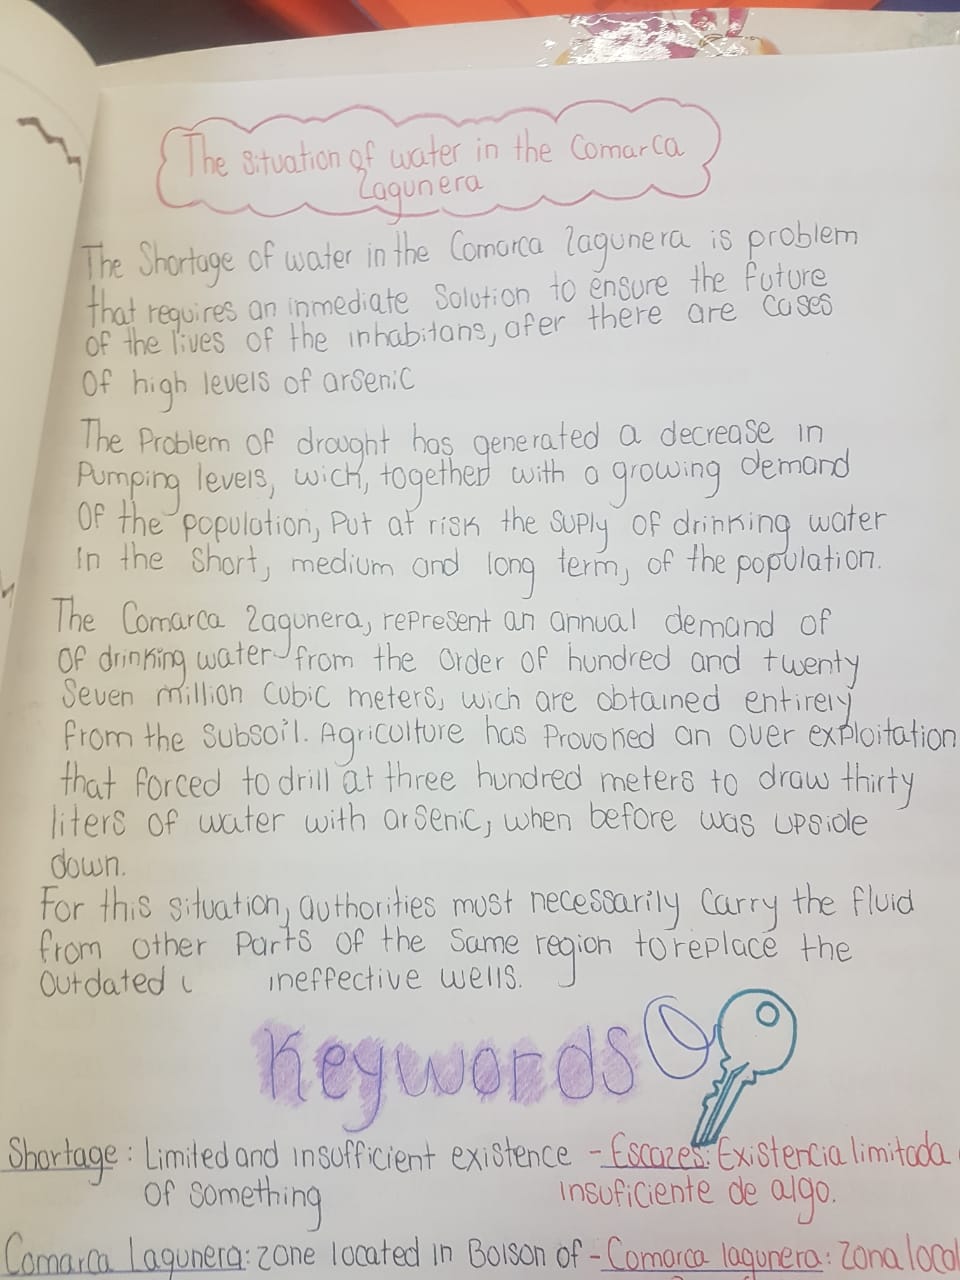 The situation of water in the Comarca
Lagunera
The Shortage of water in the Comarca Lagunera is problem
that requires an inmediate Solution to ensure the future
of the lives of the inhabitans, afer there are cases
Of high levels of arsenic
The Problem of drought has generated a decrease in
Pumping levels, wich, together with a growing demand
Of the population, Put at risk the Suply of drinking water
In the Short, medium and long term, of the population.
The Comarca Lagunera, represent an annual demand of
Of drinking water from the order of hundred and twenty
Seven million Cubic meters, wich are obtained entirely
from the Subsoil. Agriculture has Provoked an over exploitation
that forced to drill at three hundred meters to draw thirty
liters of water with arsenic, when before was upside
down.
For this situation, authorities must necessarily Carry the fluid
from other Parts of the Same region to replace the
Outdated ineffective wells.
Keywords
Shortage: Limited and insufficient existence - Escazes: Existencia limitada
Of Something insuficiente de algo.
Comarca Lagunera: zone located in Bolson of - Comarca lagunera: Zona local